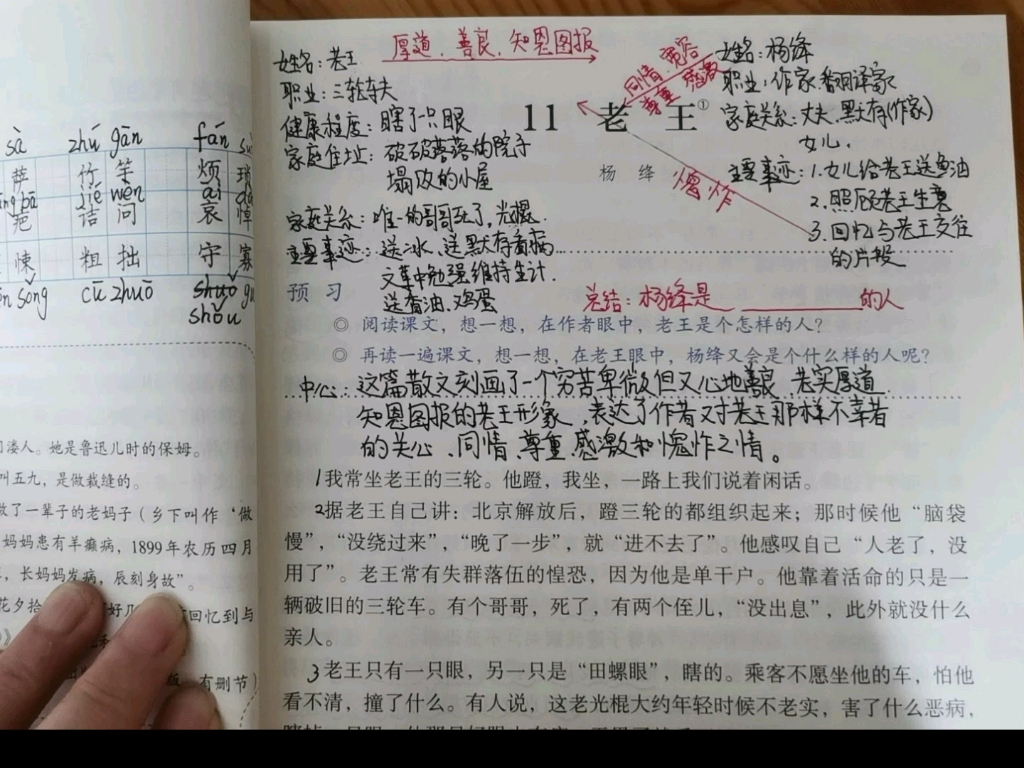 sà zhú gān fán
萨 竹 竿 烦
jié wèn āi
疤 诘 问 哀 悼
悚 粗 拙 守 寡
sǒng cū zhuō shǒu
她是鲁迅儿时的保姆。
叫五九，是做裁缝的。
做了一辈子的老妈子（乡下叫作‘做
妈妈患有羊癫病，1899年农历四月
，长妈妈发病，辰刻身故”。
花夕拾
回忆到与
有删节）
厚道、善良、知恩图报
同情、宽容
尊重 感激
愧怍
姓名：老王
职业：三轮车夫
健康程度：瞎了一只眼
家庭住址：破破落落的院子
塌败的小屋
家庭关系：唯一的哥哥死了，光棍.
主要事迹：送冰、送默存看病
文革中勉强维持生计.
送香油、鸡蛋
姓名：杨绛
职业：作家、翻译家
家庭关系：丈夫、默存（作家）
女儿.
主要事迹：1.女儿给老王送鱼油
2.照顾老王生意
3.回忆与老王交往
的片段
总结：杨绛是________的人
11 老 王①
杨 绛
预 习
◎ 阅读课文，想一想，在作者眼中，老王是个怎样的人？
◎ 再读一遍课文，想一想，在老王眼中，杨绛又会是个什么样的人呢？
中心：这篇散文刻画了一个穷苦卑微但又心地善良、老实厚道
知恩图报的老王形象，表达了作者对老王那样不幸者
的关心、同情、尊重、感激和愧怍之情。
1我常坐老王的三轮。他蹬，我坐，一路上我们说着闲话。
2据老王自己讲：北京解放后，蹬三轮的都组织起来；那时候他“脑袋
慢”，“没绕过来”，“晚了一步”，就“进不去了”。他感叹自己“人老了，没
用了”。老王常有失群落伍的惶恐，因为他是单干户。他靠着活命的只是一
辆破旧的三轮车。有个哥哥，死了，有两个侄儿，“没出息”，此外就没什么
亲人。
3老王只有一只眼，另一只是“田螺眼”，瞎的。乘客不愿坐他的车，怕他
看不清，撞了什么。有人说，这老光棍大约年轻时候不老实，害了什么恶病，